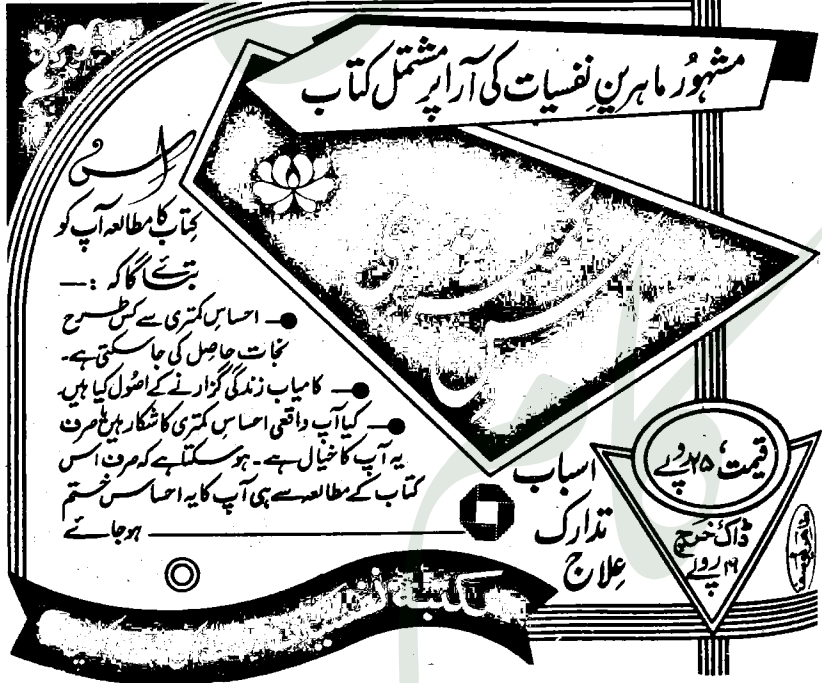 مشہور ماہرین نفسیات کی آرا پر مشتمل کتاب
اس
کتاب کا مطالعہ آپ کو
بتائے گا کہ :—
احساسِ کمتری سے کس طرح
نجات حاصل کی جاسکتی ہے۔
کامیاب زندگی گزارنے کے اصُول کیا ہیں۔
کیا آپ واقعی احساسِ کمتری کا شکار ہیں یا صرف
یہ آپ کا خیال ہے۔ ہوسکتا ہے کہ صرف اس
کتاب کے مطالعہ سے ہی آپ کا یہ احساس ختم
ہوجائے
اسباب
تدارک
علاج
قیمت، ۲۵ روپے
ڈاک خرچ
روپے
مکتبہ